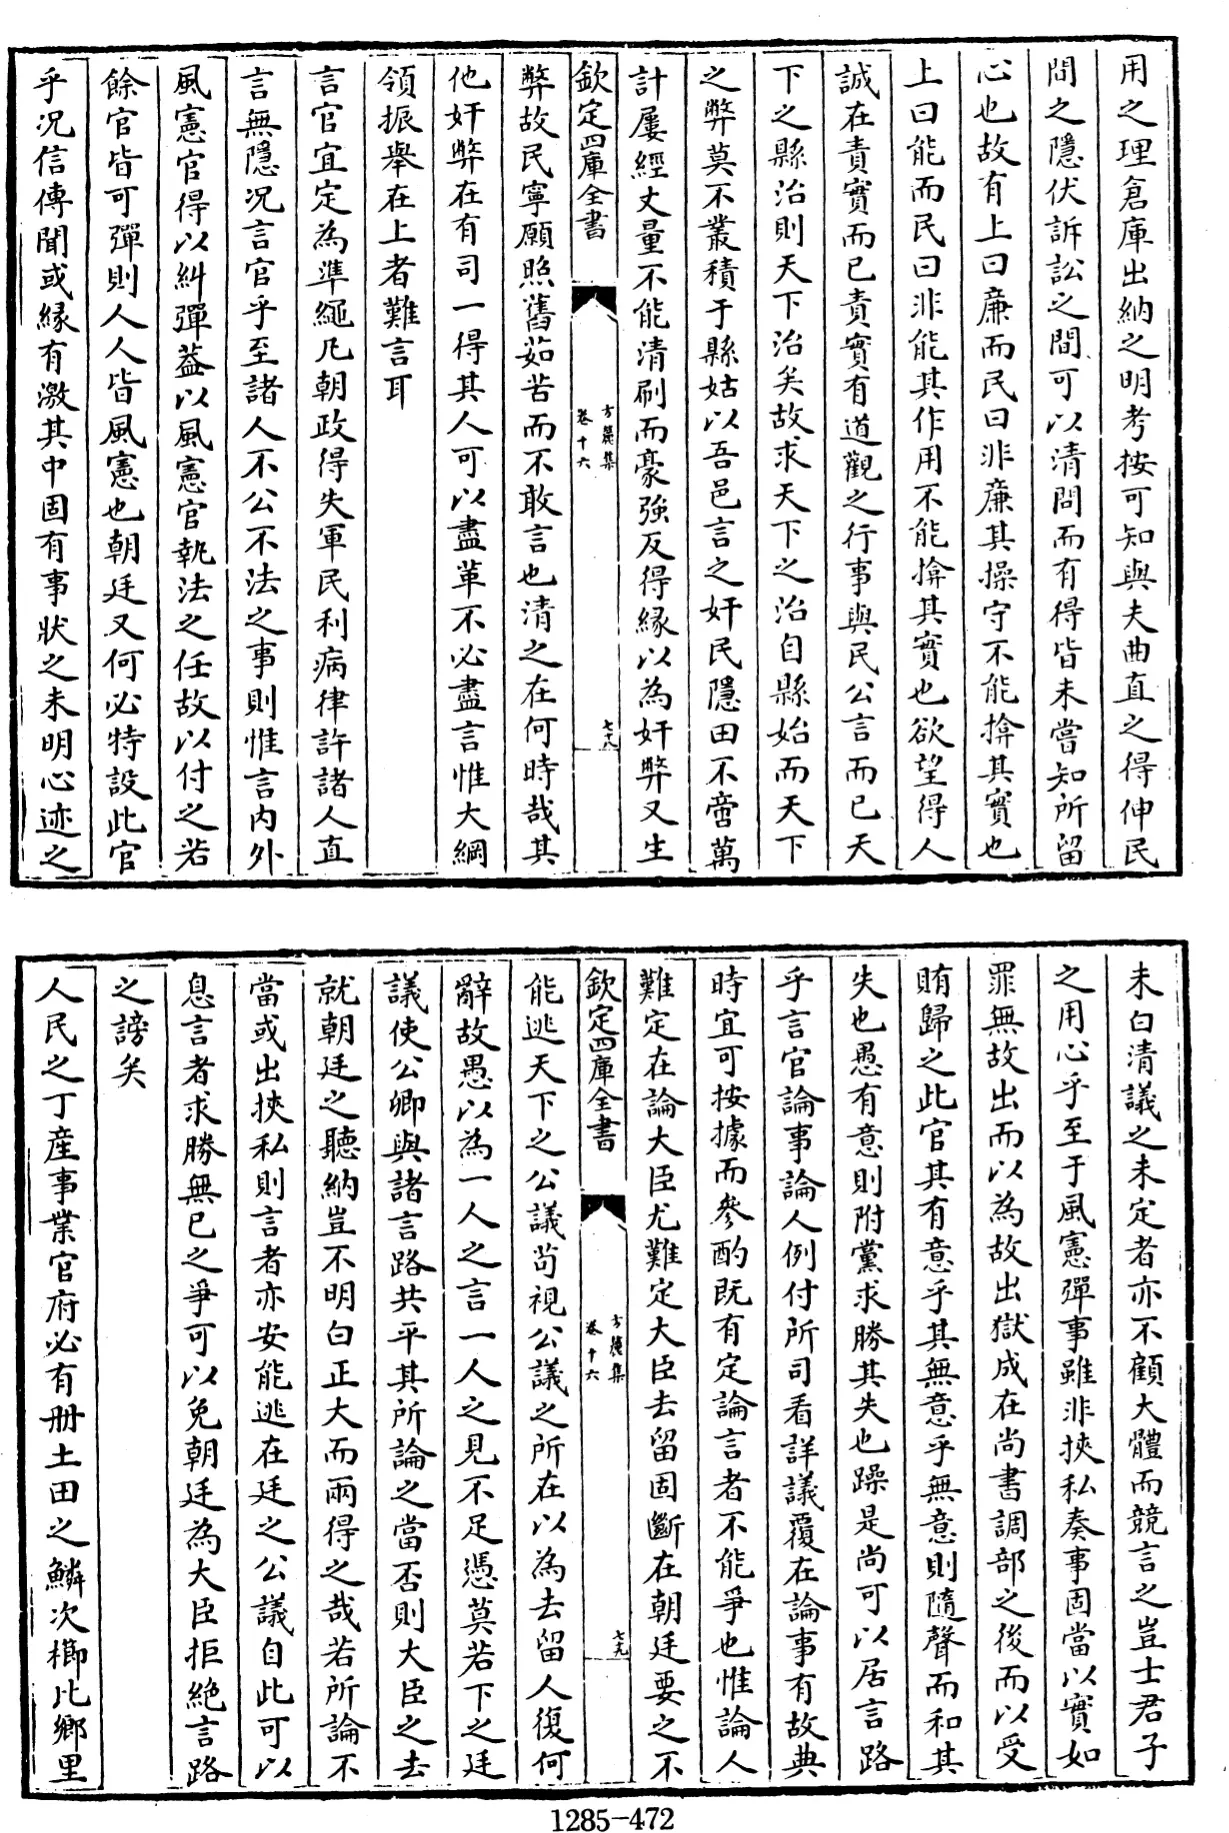 用之理倉庫出納之明考按可知與夫曲直之得伸民
間之隱伏訴訟之間可以清問而有得皆未嘗知所留
心也故有上曰廉而民曰非廉其操守不能揜其實也
上曰能而民曰非能其作用不能揜其實也欲望得人
誠在責實而已責實有道觀之行事與民公言而已天
下之縣治則天下治矣故求天下之治自縣始而天下
之弊莫不叢積于縣姑以吾邑言之奸民隱田不啻萬
計屢經丈量不能清刷而豪強反得緣以為奸弊又生
欽定四庫全書
方麓集
卷十六
七十八
弊故民寧願照舊茹苦而不敢言也清之在何時哉其
他奸弊在有司一得其人可以盡革不必盡言惟大綱
領振舉在上者難言耳
言官宜定為準繩凡朝政得失軍民利病律許諸人直
言無隱况言官乎至諸人不公不法之事則惟言內外
風憲官得以糾彈葢以風憲官執法之任故以付之若
餘官皆可彈則人人皆風憲也朝廷又何必特設此官
乎况信傳聞或緣有激其中固有事狀之未明心迹之
未白清議之未定者亦不顧大體而競言之豈士君子
之用心乎至于風憲彈事雖非挾私奏事固當以實如
罪無故出而以為故出獄成在尚書調部之後而以受
賄歸之此官其有意乎其無意乎無意則隨聲而和其
失也愚有意則附黨求勝其失也躁是尚可以居言路
乎言官論事論人例付所司看詳議覆在論事有故典
時宜可按據而參酌既有定論言者不能爭也惟論人
難定在論大臣尤難定大臣去留固斷在朝廷要之不
欽定四庫全書
方麓集
卷十六
七十九
能逃天下之公議苟視公議之所在以為去留人復何
辭故愚以為一人之言一人之見不足憑莫若下之廷
議使公卿與諸言路共平其所論之當否則大臣之去
就朝廷之聽納豈不明白正大而兩得之哉若所論不
當或出挾私則言者亦安能逃在廷之公議自此可以
息言者求勝無已之爭可以免朝廷為大臣拒絶言路
之謗矣
人民之丁產事業官府必有冊土田之鱗次櫛比鄉里
1285-472